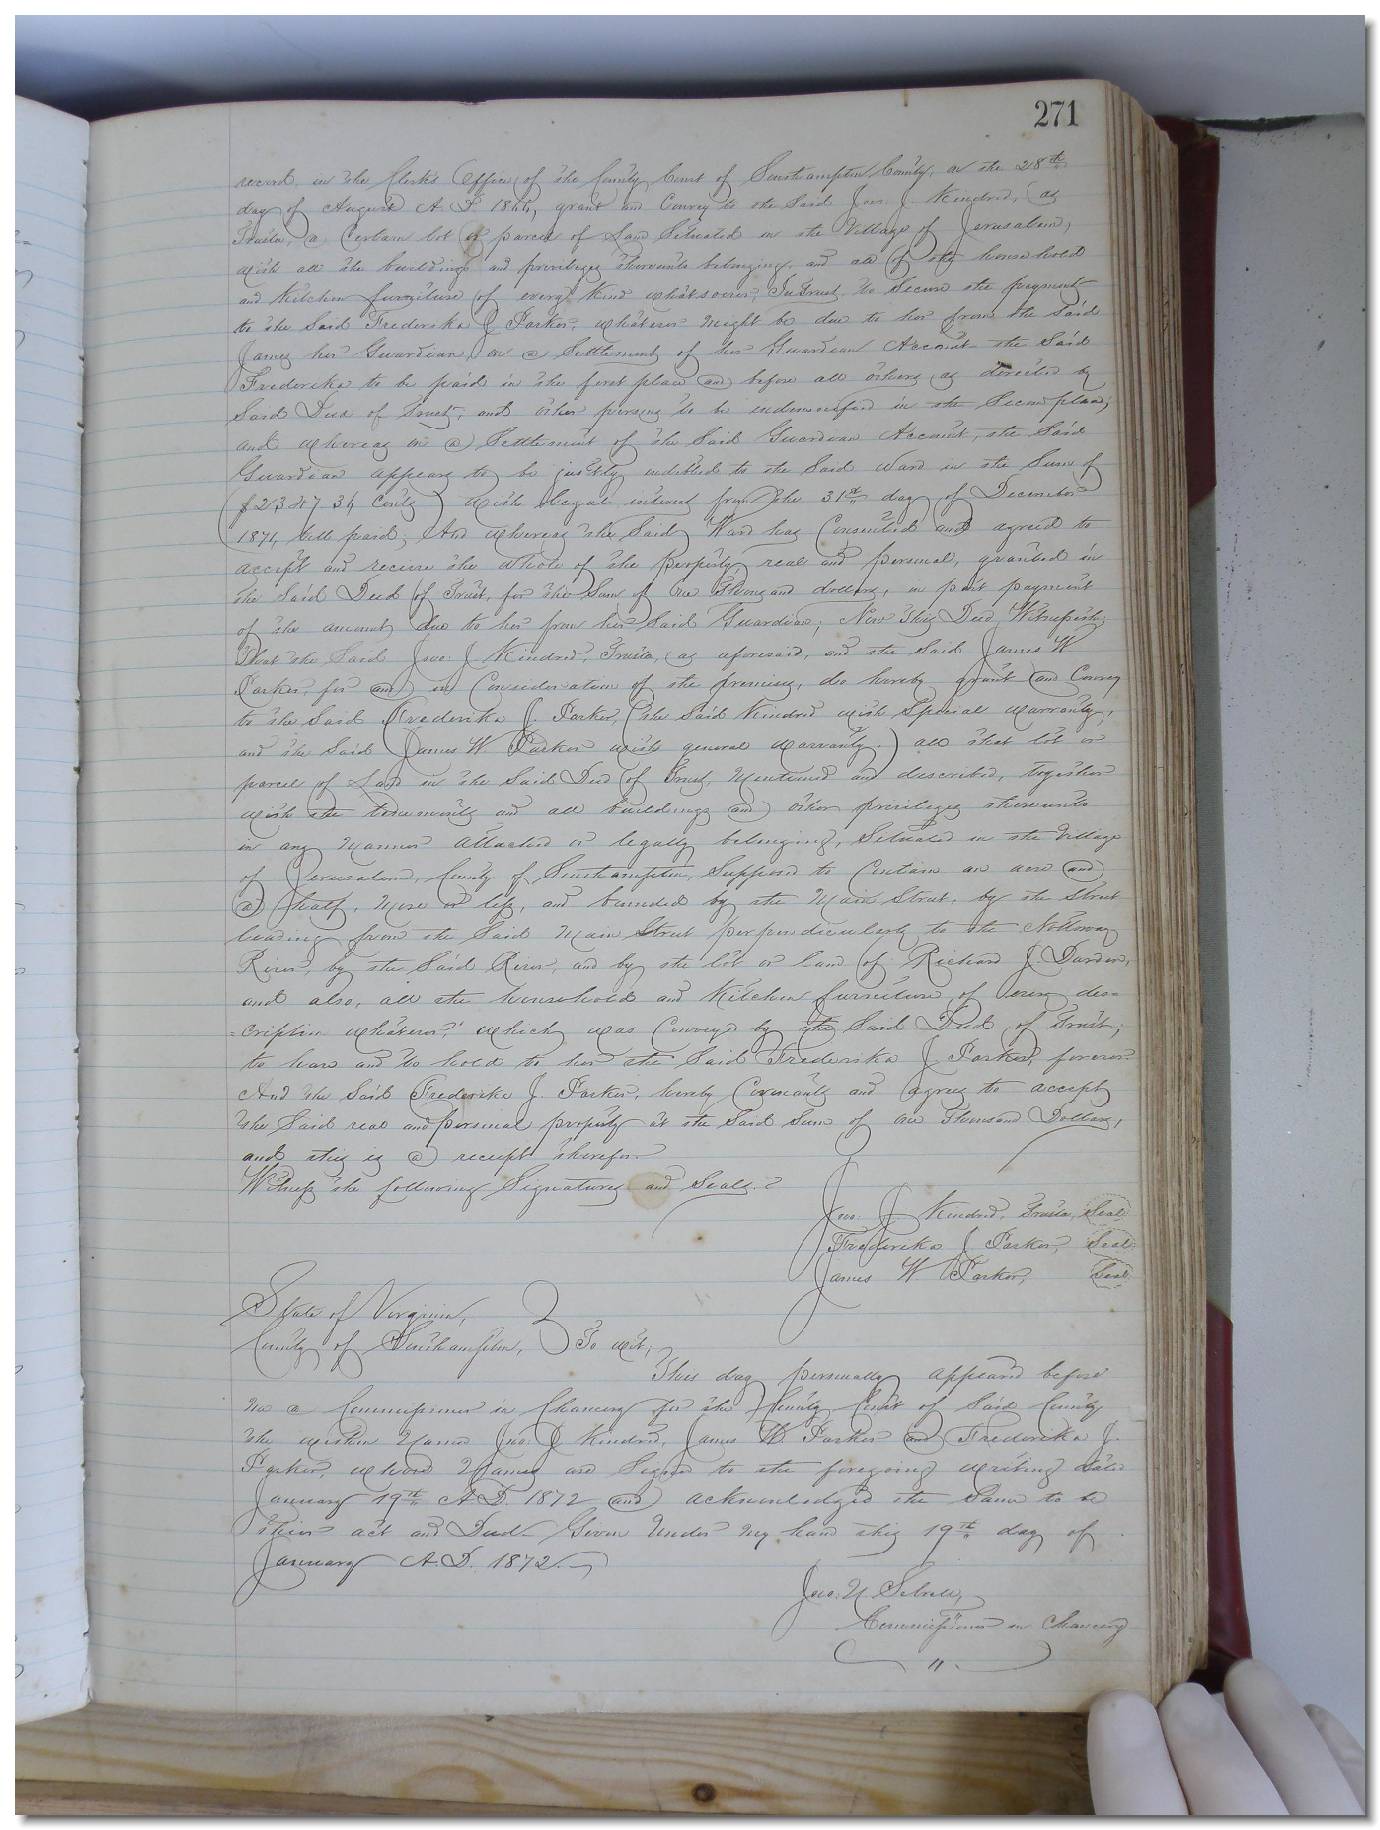 271
record, in the Clerks Office of the County Court of Southampton County, on the 28th
day of August A.D. grant and Convey to the Said Jno: J. Kindred, as
Trustee, a Certain lot or parcel of Land Situated in the Village of Jerusalem,
with all the buildings and privileges thereunto belonging, and all of the household
and Kitchen furniture of every Kind whatsoever, In Trust to Secure the payment
to the Said Frederika J Parker, whatever might be due to her from the said
James her Guardian, on a Settlement of her Guardian Account the Said
Frederika to be paid in the first place and before all others as directed by
Said Deed of Trust, and other persons to be indemnified in the Second place;
and whereas on a Settlement of the Said Guardian Account, the Said
Guardian appears to be justly indebted to the Said Ward in the Sum of
Cents with legal interest from the 31st day of December
1871, till paid; And whereas the Said Ward has Consented and agreed to
accept and receive the whole of the property, real and personal, granted in
the Said Deed of Trust, for the Sum of One Thousand dollars, in part payment
of the amount due to her from her Said Guardian; Now This Deed Witnesseth:
That the Said Jno: J Kindred, Trustee, as aforesaid, and the Said James W
Parker, for and in Consideration of the premises, do hereby grant and Convey
to the Said Frederika J. Parker, (the Said Kindred with Special warranty,
and the Said James W Parker with general warranty.) all that lot or
parcel of Land in the Said Deed of Trust, Mentioned and described, together
with the tenements and all buildings and other privileges thereunto
in any Manner attached or legally belonging, Situated in the Village
of Jerusalem, County of Southampton, Supposed to Contain an acre and
a half, More or less, and bounded by the Main Street, by the Street
leading from the Said Main Street perpendicularly to the Nottoway
River, by the Said River, and by the lot or land of Richard J. Darden,
and also, all the household and Kitchen furniture of every des=
=cription whatever, which was Conveyed by the Said Deed of Trust;
to have and to hold to her the Said Frederika J Parker, forever.
And the Said Frederika J. Parker, hereby Covenants and agrees to accept
the Said real and personal property at the Said Sum of One Thousand Dollars,
and this is a receipt therefor.
Witness the following Signatures and Seals.
Jno: J. Kindred, Trustee, Seal
Frederika J Parker, Seal
James W Parker, Seal
State of Virginia,
County of Southampton, To wit;
This day personally appeared before
me a Commissioner in Chancery for the County Court of Said County
the within Named Jno: J Kindred, James W. Parker and Frederika J.
Parker, whose Names are Signed to the foregoing writing dated
January 19th A.D. 1872 and acknowledged the Same to be
their act and Deed Given Under My hand this 19th day of
January A.D. 1872.
Jno: N Sebrell,
Commissioner in Chancery